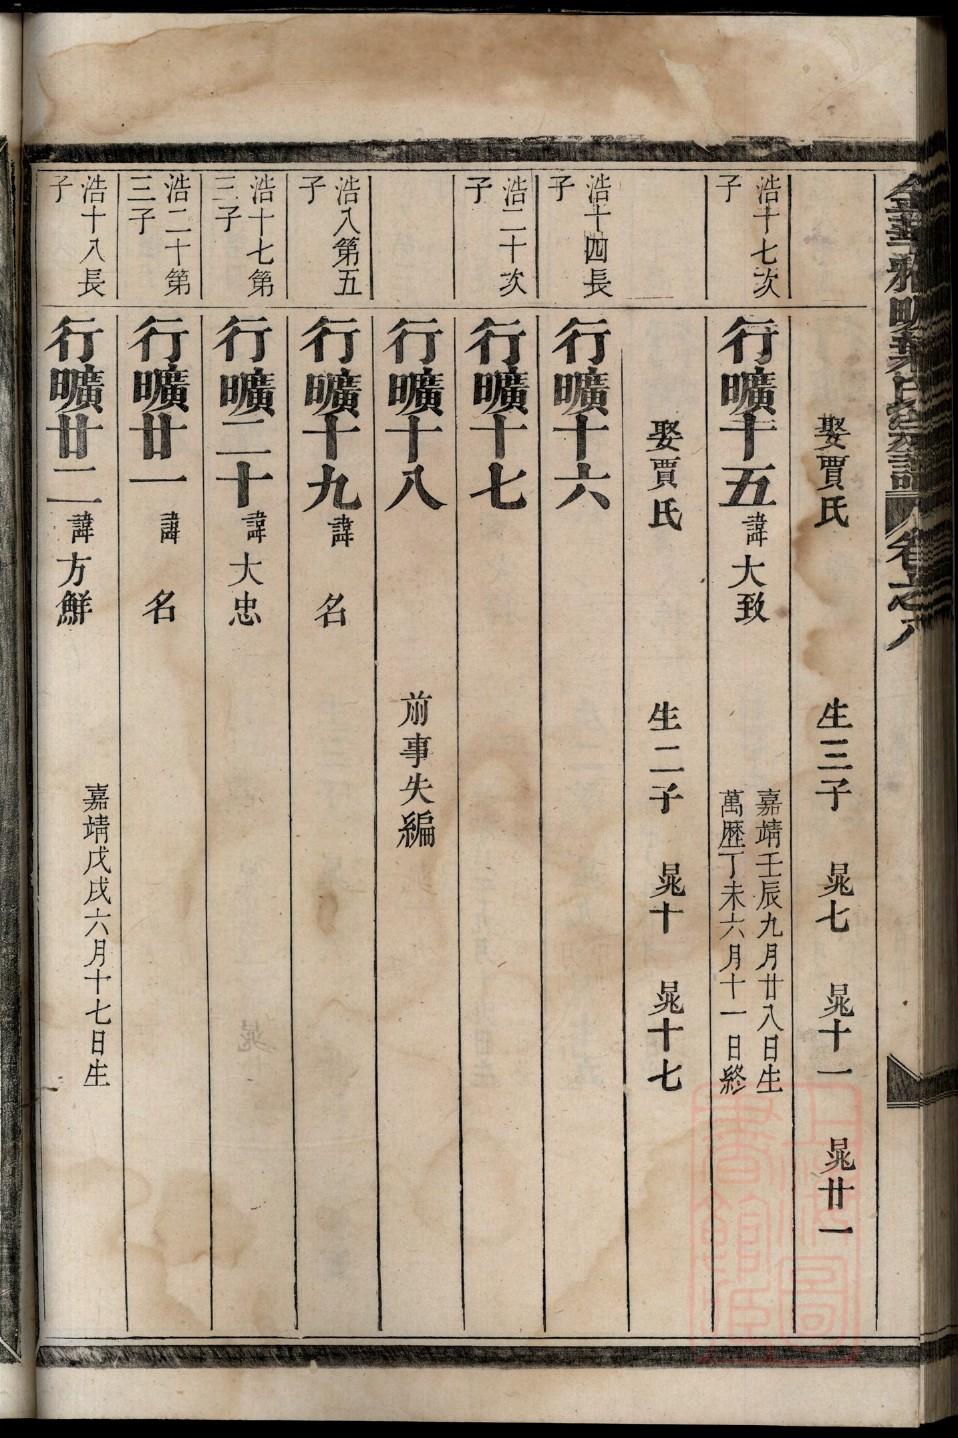 娶賈氏 生三子 晁七 晁十一 晁廿一
浩十七次子
行曠十五 諱大致 嘉靖壬辰九月廿八日生
萬歷丁未六月十一日終
娶賈氏 生二子 晁十 晁十七
浩十四長子
行曠十六
浩二十次子
行曠十七
行曠十八 前事失編
浩八第五子
行曠十九 諱 名
浩十七第三子
行曠二十 諱大忠
浩二十第三子
行曠廿一 諱 名
浩十八長子
行曠廿二 諱方鮮 嘉靖戊戌六月十七日生
卷之八
上海圖書館藏